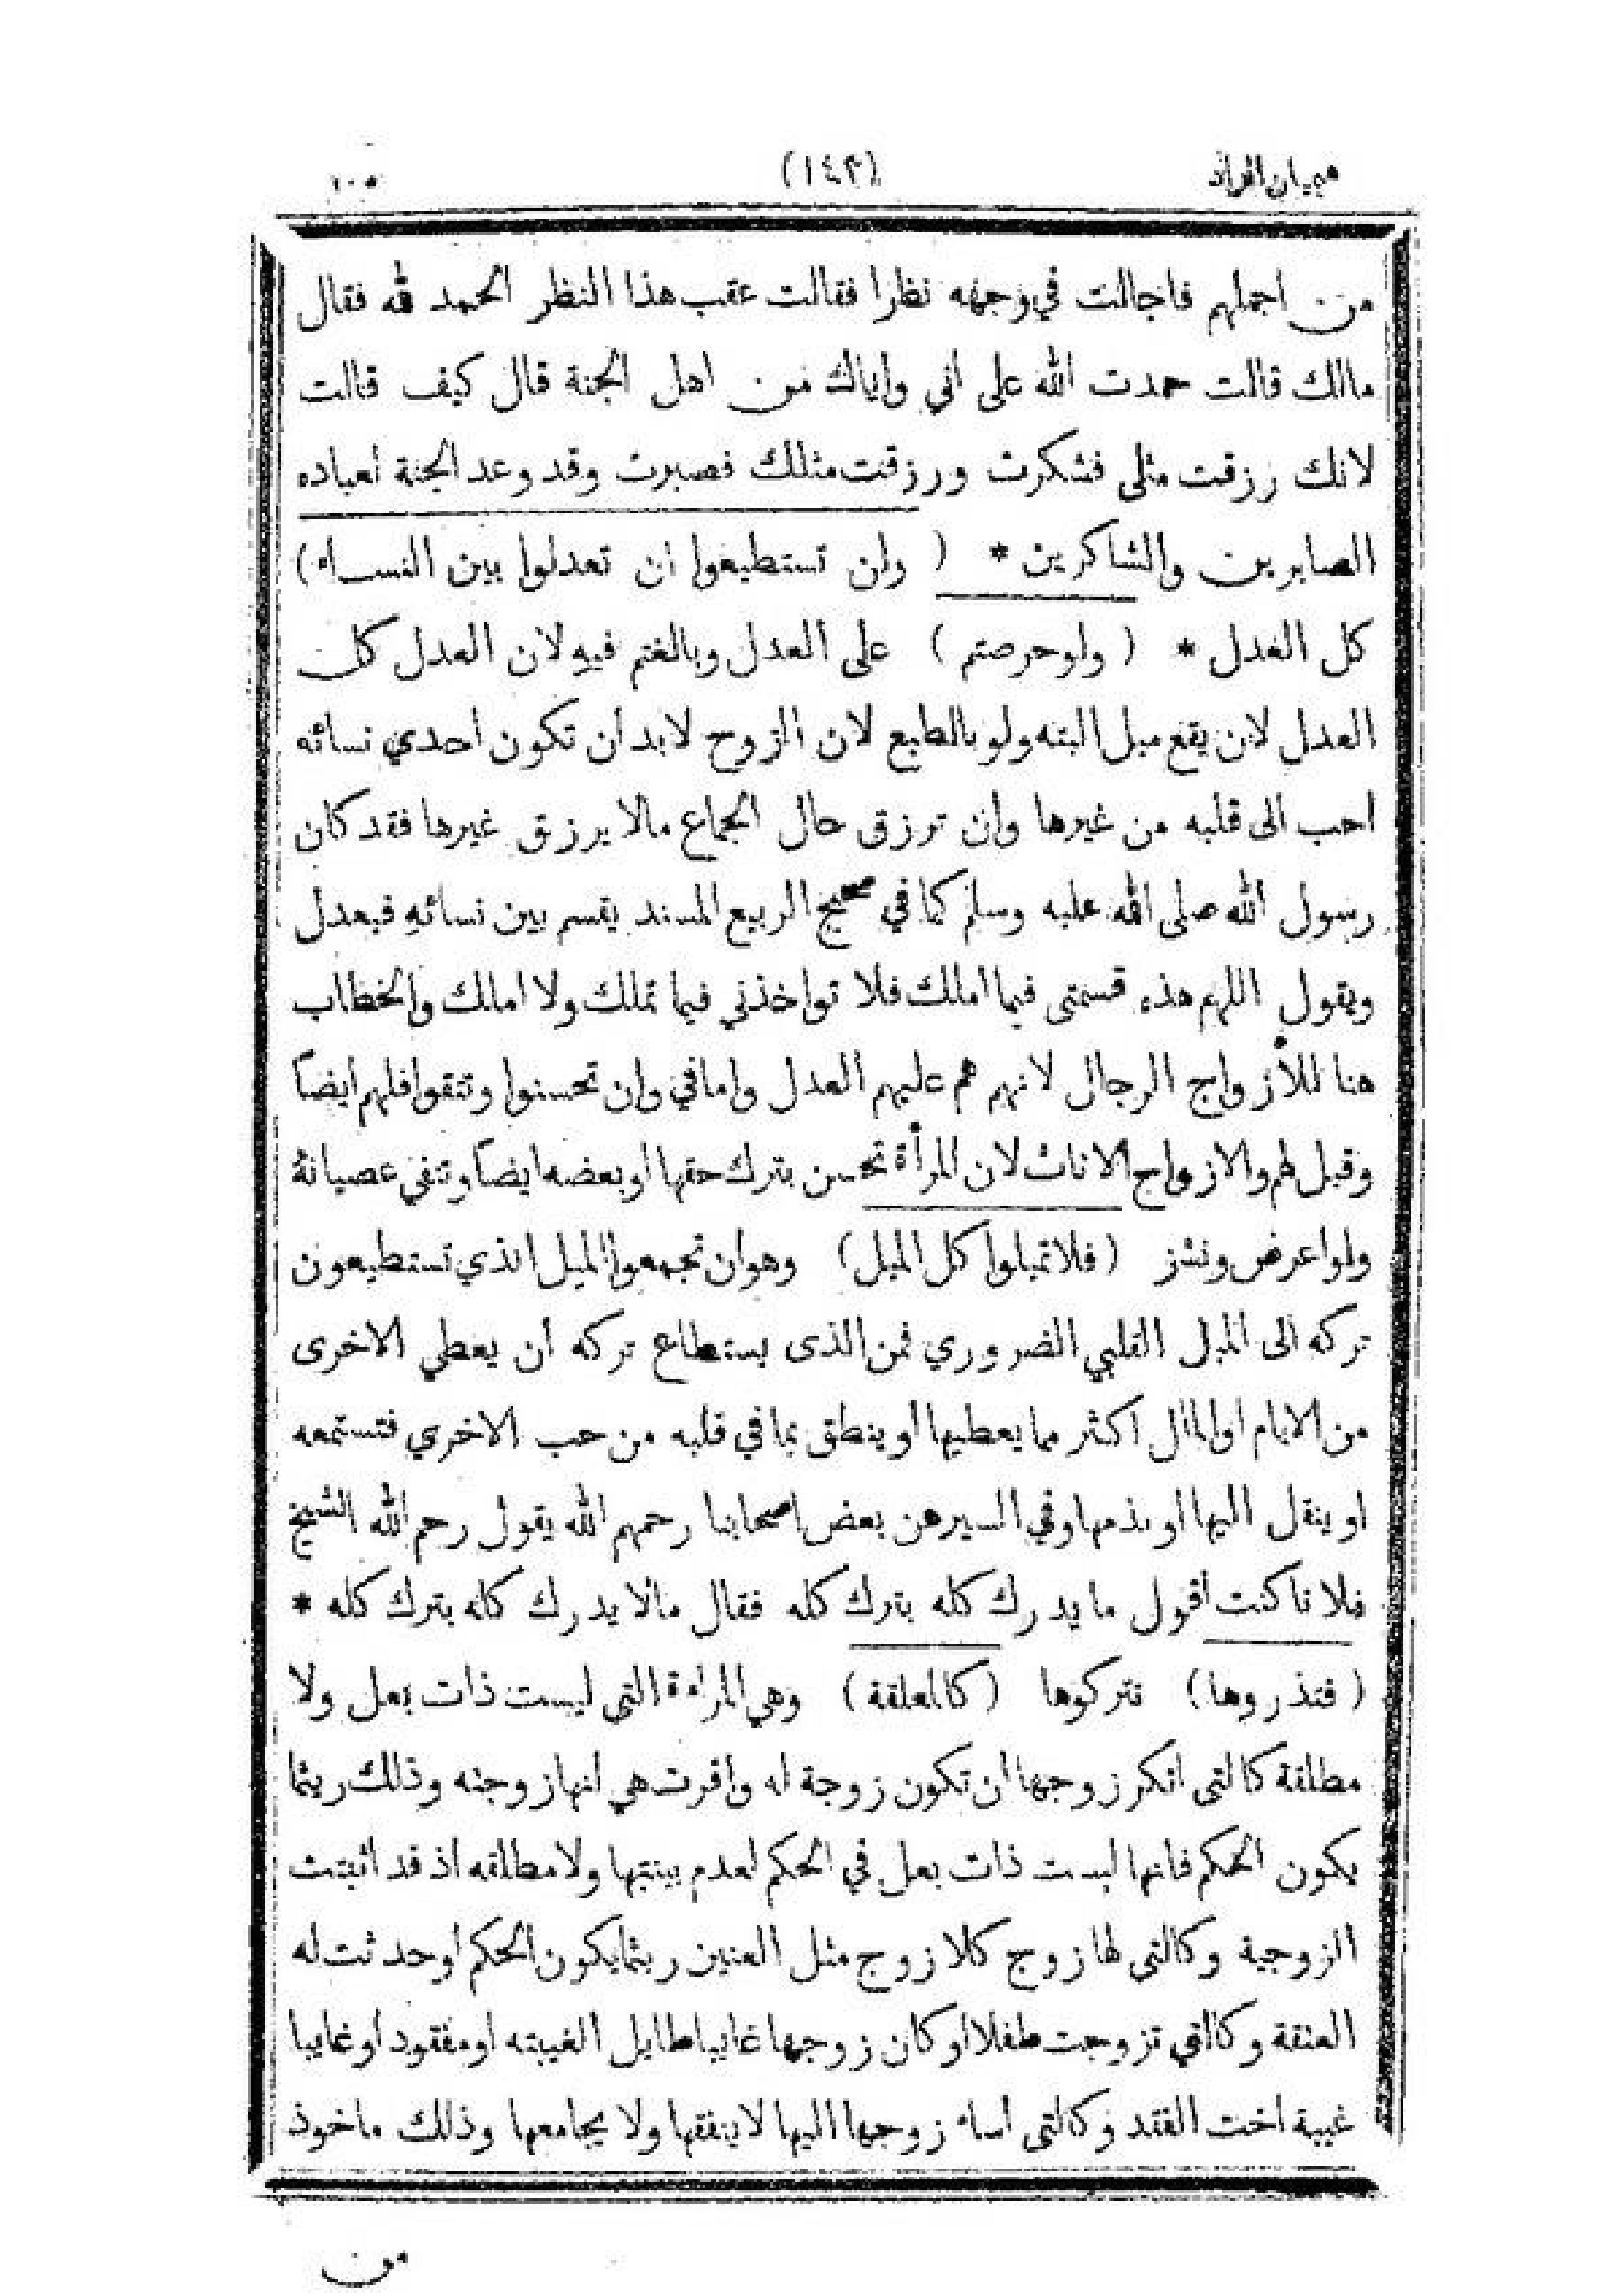 هيميان الزاد (١٤٣) ج ٥
من اجملهم فاجالت في وجهه نظرا فقالت عقب هذا النظر الحمد لله فقال
مالك قالت حمدت الله على اني واياك من اهل الجنة قال كيف قالت
لانك رزقت مثلى فشكرت ورزقت مثلك فصبرت وقد وعد الجنة لعباده
الصابرين والشاكرين * ( ولن تستطيعوا ان تعدلوا بين النساء )
كل العدل * ( ولو حرصتم ) على العدل وبالغتم فيه لان العدل كل
العدل لان يقع ميل البته ولو بالطبع لان الزوج لابد ان تكون احدي نسائه
احب الى قلبه من غيرها وان ترزق حال الجماع مالا يرزق غيرها فقد كان
رسول الله صلى الله عليه وسلم كما في صحيح الربيع المسند يقسم بين نسائه فيعدل
ويقول اللهم هذه قسمتى فيما املك فلا تواخذني فيما تملك ولا املك والخطاب
هنا للأزواج الرجال لانهم هم عليهم العدل واما في وان تحسنوا وتتقوا فلهم ايضاً
وقيل لهم والازواج الاناث لان المرأة تحسن بترك حقها او بعضه ايضاً وتتقي عصيانه
ولو اعرض ونشز ( فلا تميلوا كل الميل ) وهو ان تجمعوا الميل الذي تستطيعون
تركه الى الميل القلبي الضروري فمن الذى يستطاع تركه ان يعطي الاخرى
من الايام او المال اكثر مما يعطيها او ينطق بما في قلبه من حب الاخري فتستمعه
او ينقل اليها او يذمها وفي السير عن بعض اصحابنا رحمهم الله يقول رحم الله الشيخ
فلانا كنت اقول ما يدرك كله بترك كله فقال مالا يدرك كله بترك كله *
( فتذروها ) تتركوها ( كالمعلقة ) وهي المراءة التي ليست ذات بعل ولا
مطلقة كالتى انكر زوجها ان تكون زوجة له واقرت هي انها زوجته وذلك ريثما
يكون الحكم فانها ليست ذات بعل في الحكم لعدم بينتها ولا مطلقه اذ قد اثبتت
الزوجية وكالتى لها زوج كلا زوج مثل العنين ريثما يكون الحكم او حدثت له
العنقة وكالتي تزوجت طفلا او كان زوجها غايبا طايل الغيبته او مفقود او غايبا
غيبة اخت الفقد وكالتى اساء زوجها اليها لا ينفقها ولا يجامعها وذلك ماخوذ
من